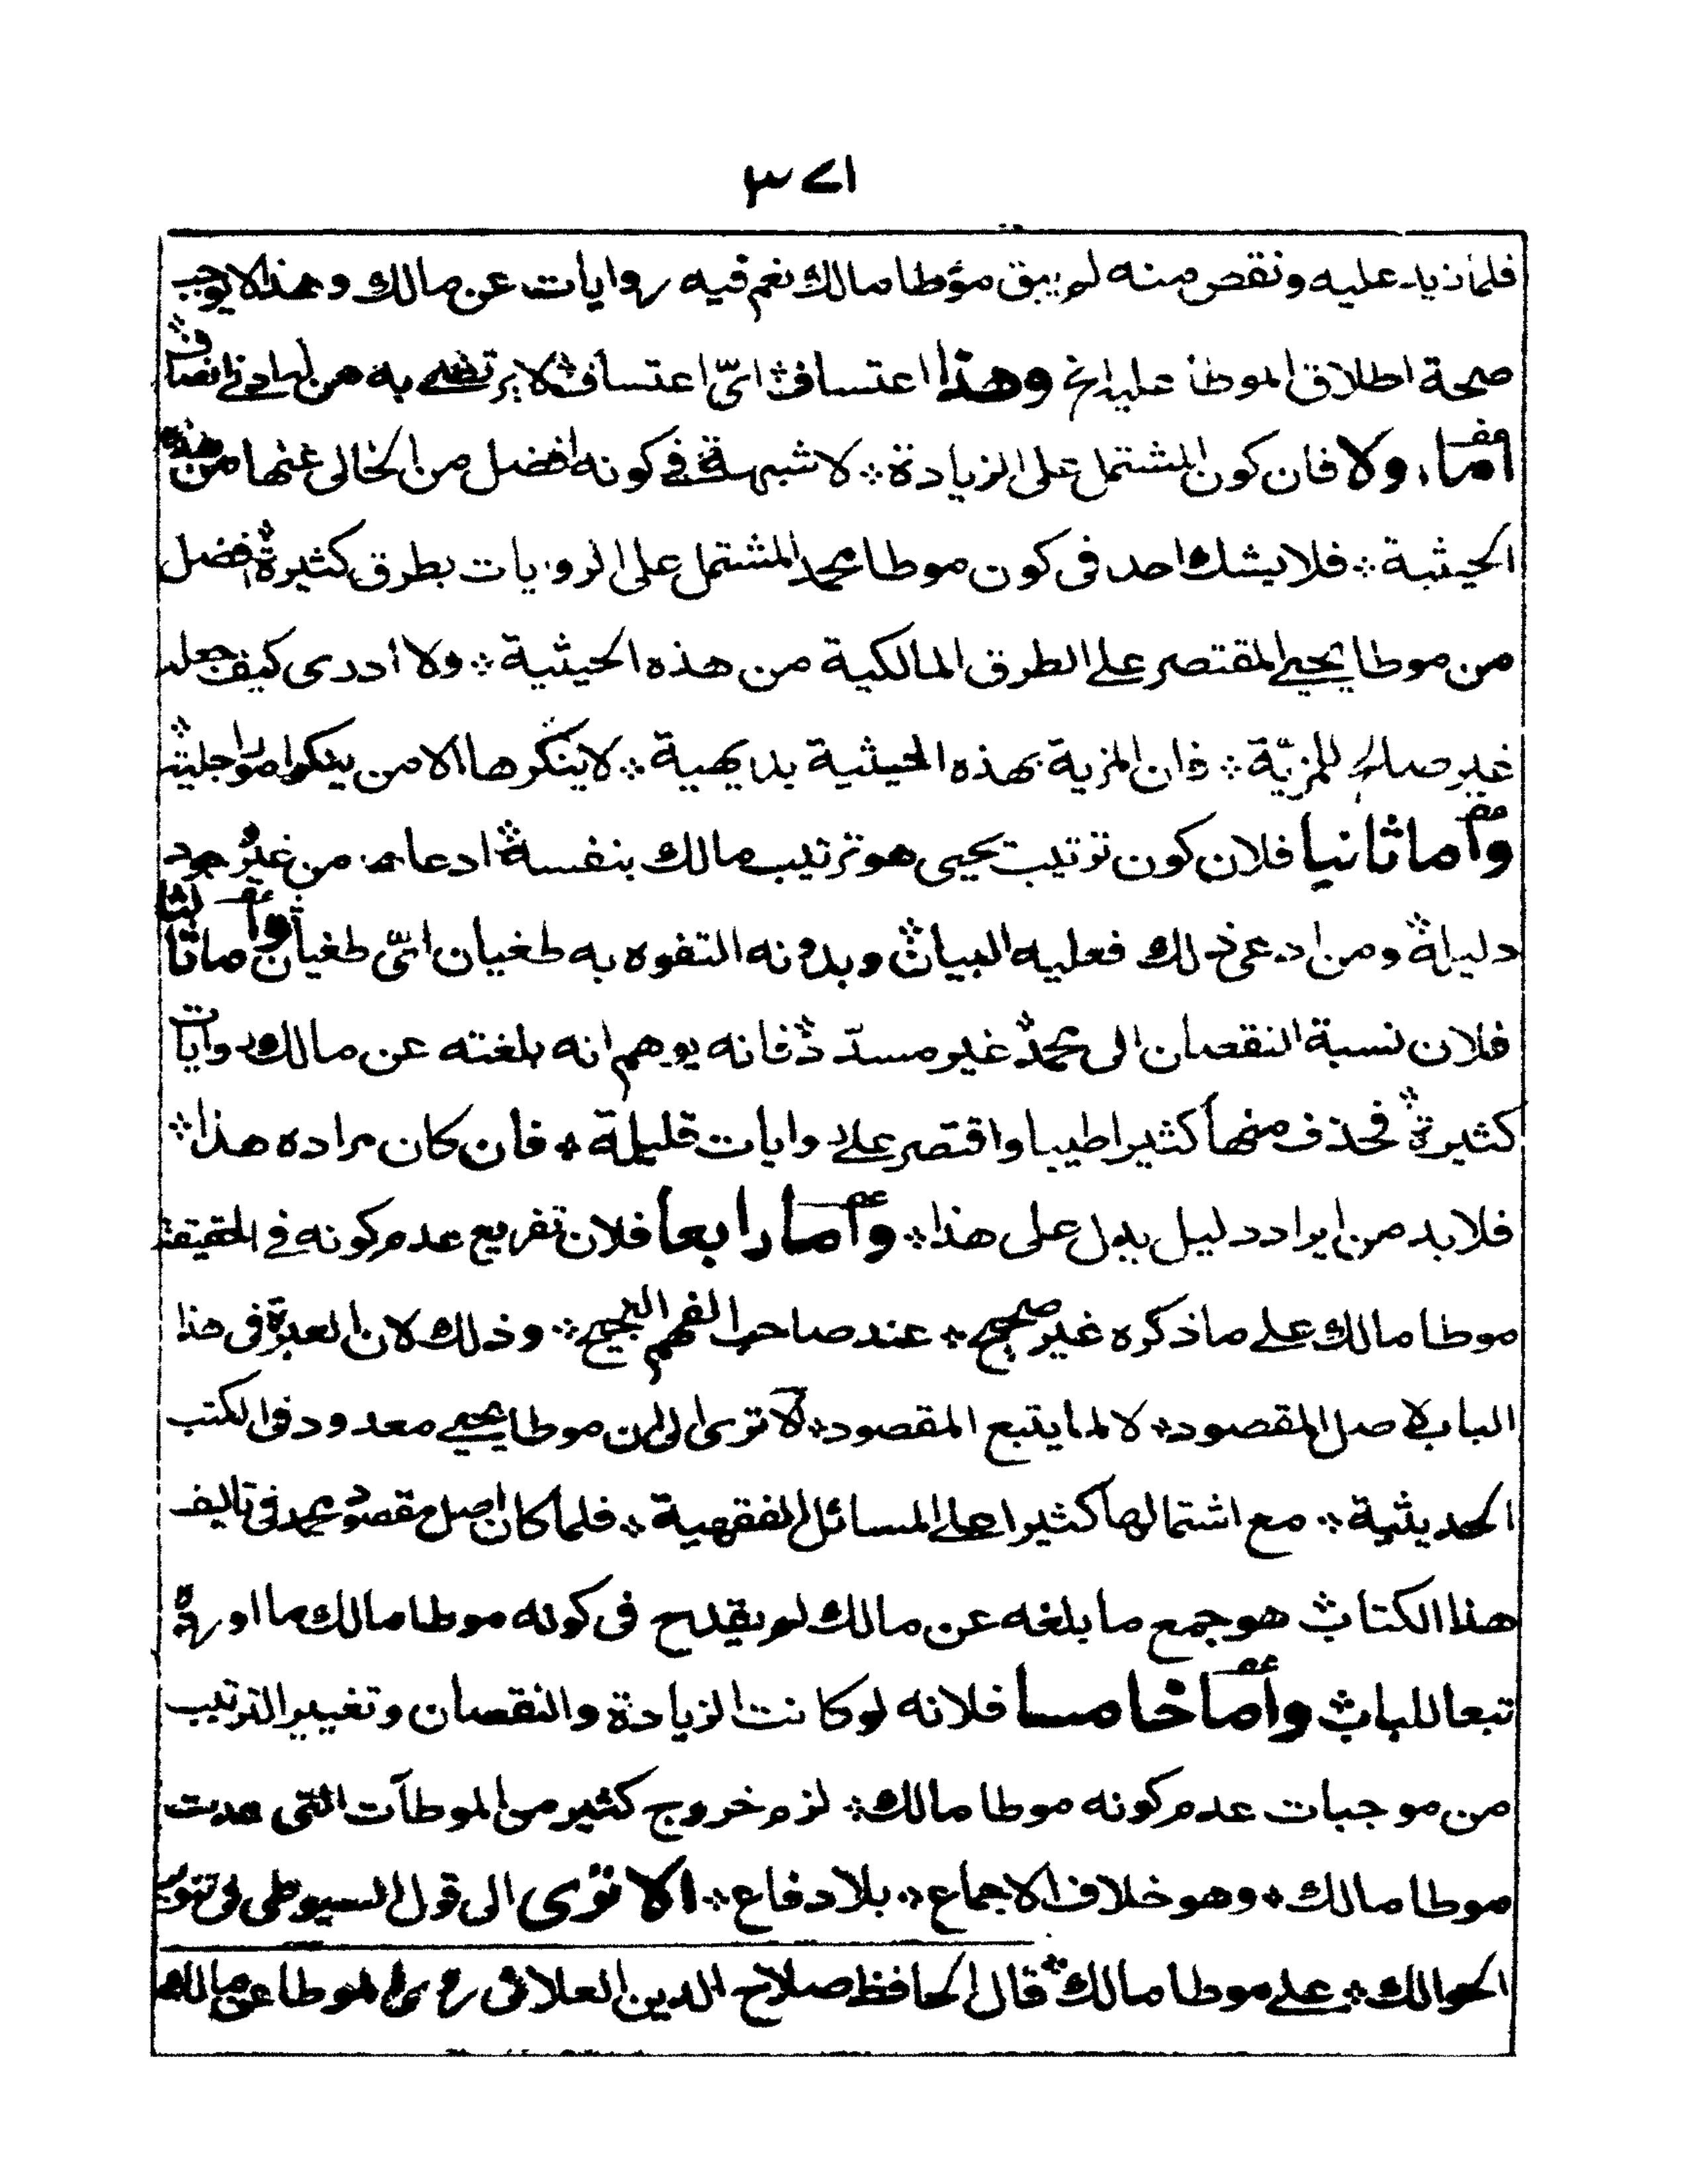 ٣٧١
فلما زيد عليه ونقص منه لم يبق مؤطا مالك نعم فيه روايات عن مالك وهذا لا يوجب
صحة اطلاق الموطأ عليه الخ وهذا اعتساف اىّ اعتساف لا يرتضے به من له ادنے انصاف
امّا اولا فان كون المشتمل على الزيادة لا شبهة فے كونه افضل من الخالى عنها من هذه
الحيثية فلا يشك احد فى كون موطا محمد المشتمل على الروايات بطرق كثيرة افضل
من موطا يحيے المقتصر علے الطرق المالكية من هذه الحيثية ولا ادرى كيف جعله
غير صالح للمزيّة فان المزية بهذه الحيثية بديهية لا ينكرها الا من ينكر امورا جلية
وأما ثانيا فلان كون ترتيب يحيى هو ترتيب مالك بنفسه ادعاء من غير وجود
دليله ومن ادعى ذلك فعليه البيان وبدونه التفوه به طغيان اىّ طغيان وأما ثالثا
فلان نسبة النقصان الى محمد غير مسدّد فانه يوهم انه بلغته عن مالك روايات
كثيرة فحذف منها كثيرا طيبا واقتصر علے روايات قليلة فان كان مراده هذا
فلا بد من ايراد دليل يدل على هذا وأما رابعا فلان تفريع عدم كونه فے الحقيقة
موطا مالك علے ما ذكره غير صحيح عند صاحب الفهم النجيح وذلك لان العبرة فى هذا
الباب لاصل المقصود لا لما يتبع المقصود ألا ترى الى ان موطا يحيے معدود فى الكتب
الحديثية مع اشتمالها كثيرا على المسائل الفقهية فلما كان اصل مقصود محمد فى تاليف
هذا الكتاب هو جمع ما بلغه عن مالك لم يقدح فى كونه موطا مالك ما اورده
تبعا للباب وأما خامسا فلانه لو كانت الزيادة والنقصان وتغيير الترتيب
من موجبات عدم كونه موطا مالك لزم خروج كثير من الموطآت التى عدت
موطا مالك وهو خلاف الاجماع بلا دفاع الا ترى الى قول السيوطى فى تنوير
الحوالك علے موطا مالك قال الحافظ صلاح الدين العلائى روى الموطا عن مالك